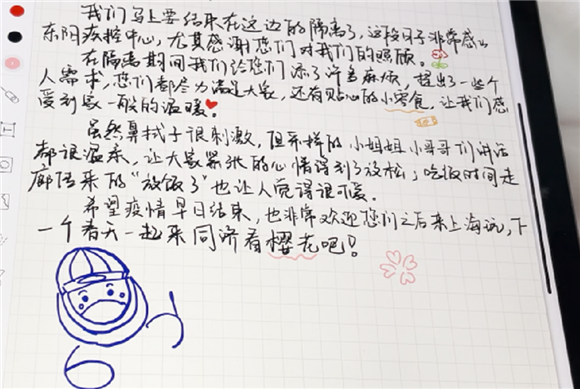 我们马上要结束在这边的隔离了，这段日子非常感谢
东阳疾控中心，尤其感谢您们对我们的照顾。
在隔离期间我们给您们添了许多麻烦，提出了一些个
人需求，您们都尽力满足大家，还有贴心的小零食，让我们感
受到家一般的温暖。
虽然鼻拭子很刺激，但采样的小姐姐小哥哥们讲话
都很温柔，让大家紧张的心情得到了放松；吃饭时间走
廊传来的“放饭了”也让人觉得很可爱。
希望疫情早日结束，也非常欢迎您们之后来上海玩，下
一个春天一起来同济看樱花吧！